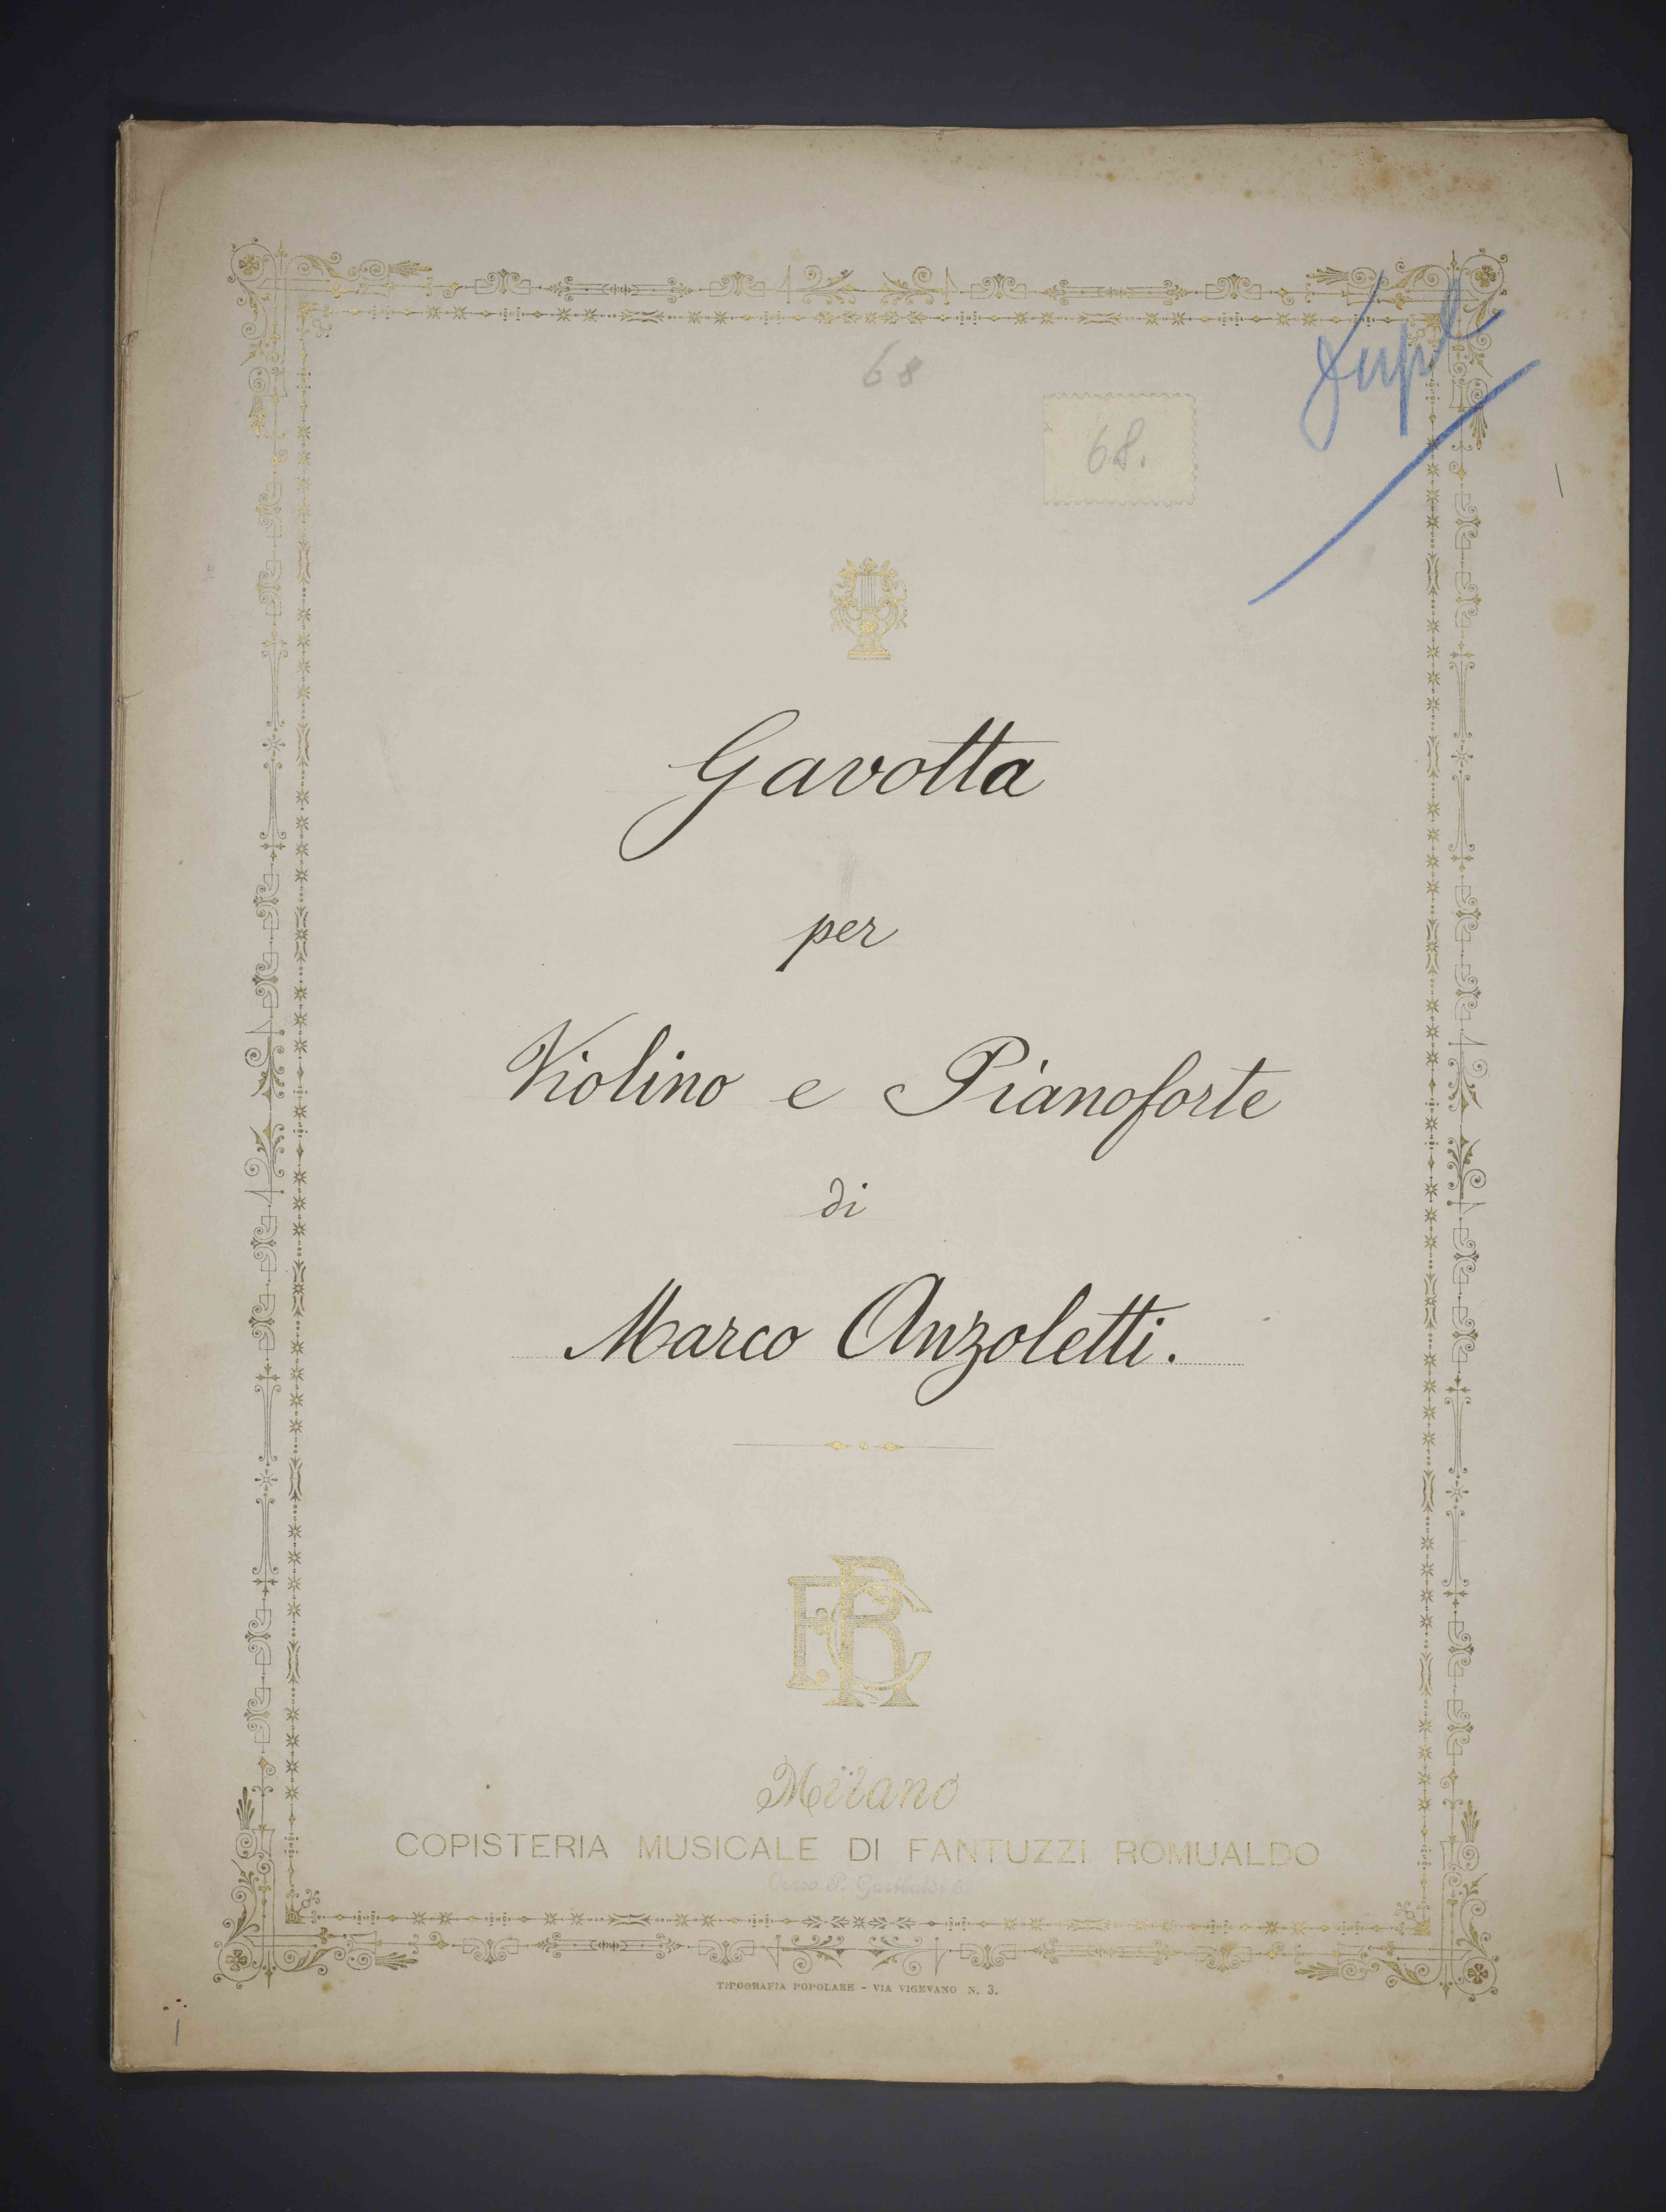 68
68.
Dupl
Gavotta
per
Violino e Pianoforte
di
Marco Anzoletti.
FRC
Milano
COPISTERIA MUSICALE DI FANTUZZI ROMUALDO
Corso P. Garibaldi 6.
TIPOGRAFIA POPOLARE - VIA VIGEVANO N. 3.